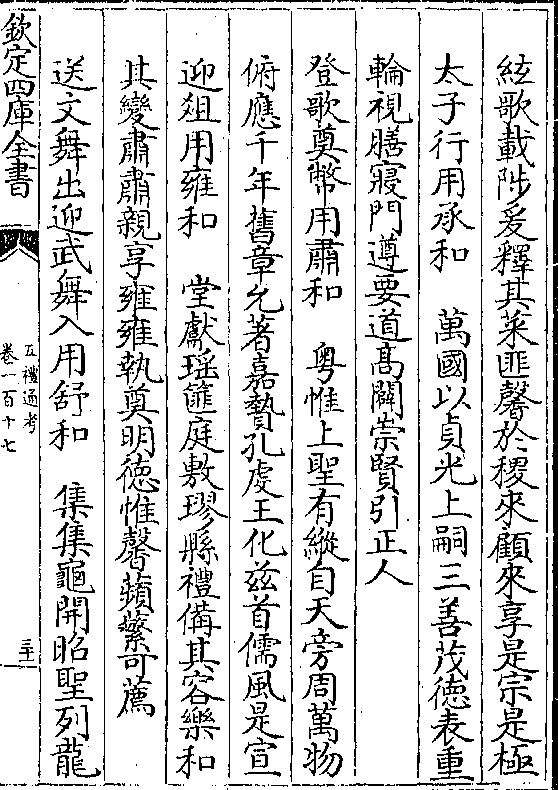 絃歌載陟爰釋其菜匪馨於稷來顧來享是宗是極
太子行用承和　萬國以貞光上嗣三善茂德表重
輪視膳寢門遵要道高闢崇賢引正人
登歌奠幣用肅和　粤惟上聖有縱自天旁周萬物
俯應千年舊章允著嘉贄孔虔王化茲首儒風是宣
迎俎用雍和　堂獻瑶篚庭敷璆縣禮備其容樂和
其變肅肅親享雍雍執奠明德惟馨蘋蘩可薦
送文舞出迎武舞入用舒和　集集龜開昭聖列龍
欽定四庫全書
五禮通考
卷一百十七